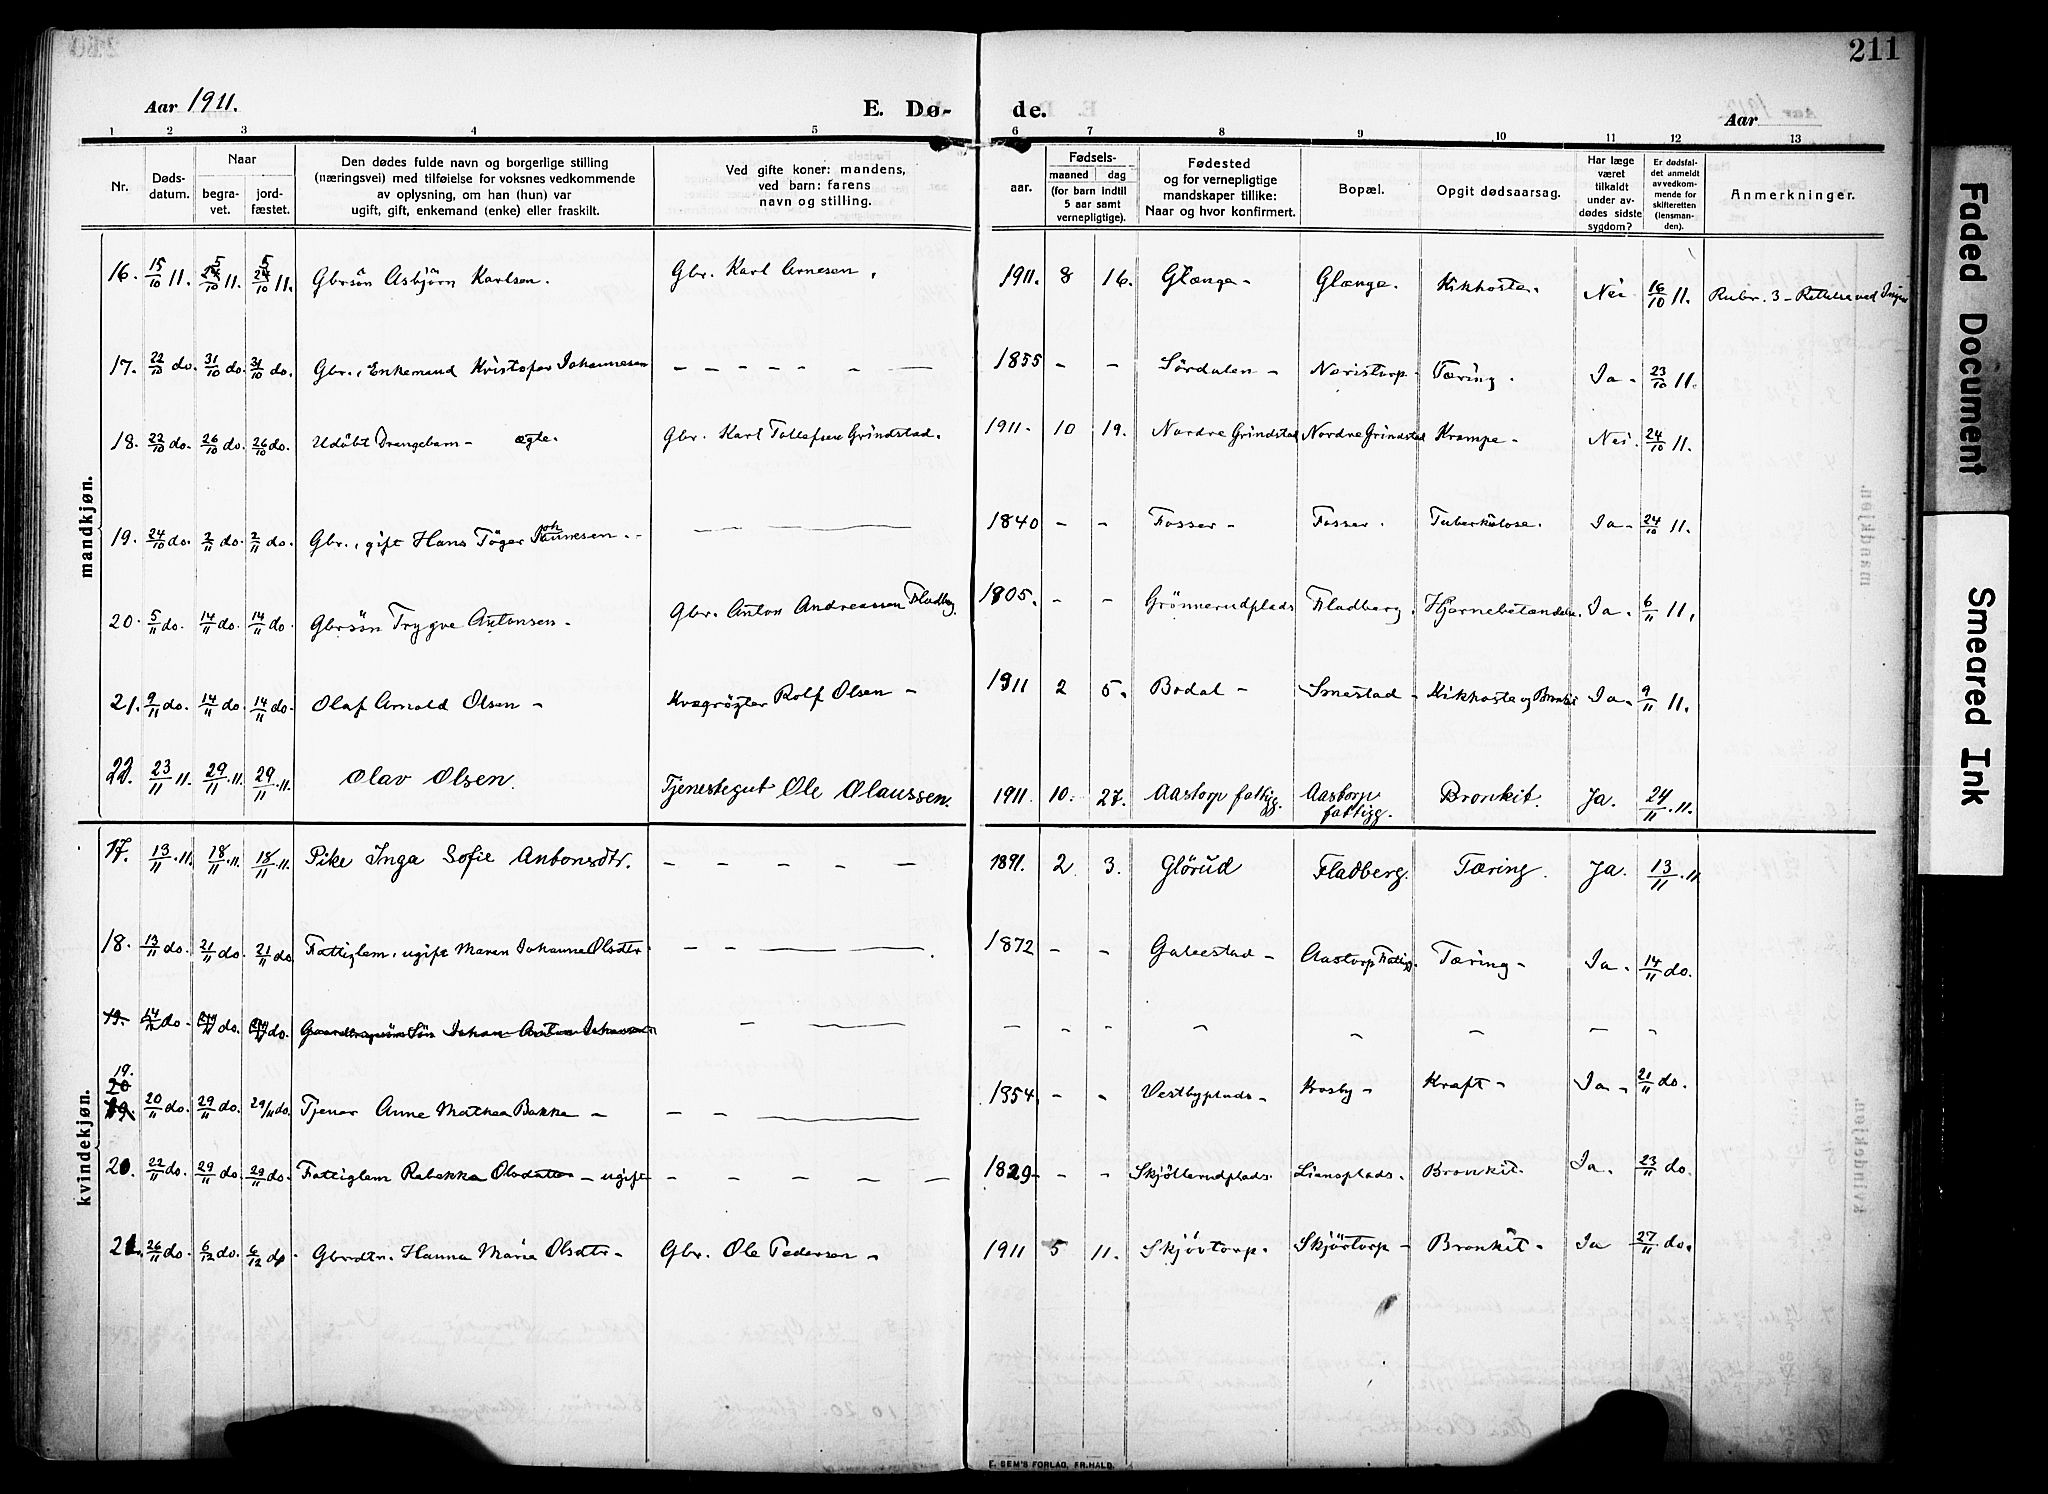 211
Aar 1911.
E. Dø-
de.
Aar
1 2 3 4 5 6 7 8 9 10 11 12 13
Nr.
Døds-
datum.
Naar
begra-
vet.
jord-
fæstet.
Den dødes fulde navn og borgerlige stilling
(næringsvei) med tilføielse for voksnes vedkommende
av oplysning, om han (hun) var
ugift, gift, enkemand (enke) eller fraskilt.
Ved gifte koner: mandens,
ved barn: farens
navn og stilling.
Fødsels-
aar.
maaned dag
(for barn indtil
5 aar samt
vernepligtige).
Fødested
og for vernepligtige
mandskaper tillike:
Naar og hvor konfirmert.
Bopæl.
Opgit dødsaarsag.
Har læge
været
tilkaldt
under av-
dødes sidste
sygdom?
Er dødsfal-
det anmeldt
av vedkom-
mende for
skifteretten
(lensman-
den).
Anmerkninger.
mandkjøn.
16. 15/10 11. 25/10 11. 25/10 11. Gbrsön Asbjörn Karlsen. Gbr. Karl Arnesen. 1911. 8 16. Glænge - Glænge. Kikhoste. Nei 16/10 11. Rubr. 3 - Rettelse ved
17. 22/10 do. 31/10 do. 31/10 do. Gbr., Enkemand Kristofer Johannesen - - - - - - 1855 - - Sördalen - Næristorp - Tæring. Ja - 23/10 11.
18. 22/10 do. 26/10 do. 26/10 do. Udöbt Drengebarn - ægte. Gbr. Karl Tollefsen Grindstad. 1911. 10 19. Nordre Grindstad Nordre Grindstad Krampe - Nei. 24/10 11.
19. 24/10 do. 2/11 do. 2/11 do. Gbr., gift Hans Töger Johannesen. - - - - 1840 - - Fosser - Fosser. Tuberkulose. Ja - 24/10 11.
20. 5/11 do. 14/11 do. 14/11 do. Gbrsön Trygve Antonsen - Gbr. Anton Andreassen Fladberg 1905. - - Grönnerudplads Fladberg. Hjernebetændelse. Ja - 6/11 11.
21. 9/11 do. 14/11 do. 14/11 do. Olaf Arnold Olsen - Kvægrögter Rolf Olsen - 1911 2 5. Bodal - Smestad - Kikhoste og Bronkit Ja - 9/11 11.
22. 23/11 11. 29/11 11. 29/11 11. Olav Olsen. Tjenestegut Ole Olaussen. 1911. 10. 27. Aastorp fattigg. Aastorp fattigg. Bronkit. Ja. 24/11 11.
kvindekjøn.
17. 13/11 11. 18/11 11. 18/11 11. Pike Inga Sofie Antonsdtr. - - - - - 1891. 2 3. Glörud Fladberg. Tæring. Ja. 13/11 11
18. 13/11 do. 21/11 do. 21/11 do Fattiglem, ugift Maren Johanne Olsdtr. - - - - 1872 - - Gabestad - Aastorp Fattigg. Tæring - Ja - 14/11 do.
19. 14/11 do - do. do. Johan Anton - - - - - - - - - -
19. 20/11 do. 29/11 do. 29/11 do. Tjener Anne Mathea Bakke - - - - 1854. - - Vestbyplads - Krosby - Kraft - Ja - 21/11 do.
20. 22/11 do. 29/11 do. 29/11 do. Fattiglem Rebekka Olsdatter - ugift - - - - - 1829 - - - Skjöllerudplads. Liensplads. Bronkit. Ja. 23/11 do.
21. 26/11 do. 6/12 do. 6/12 do - Gbrdtr. Hanna Marie Olsdtr - Gbr. Ole Pedersen - 1911 5 11. Skjövtorp. Skjövtorp - Bronkit - Ja 27/11 do.
E. SEM'S FORLAG, FR.HALD.
Faded Document
Smeared Ink